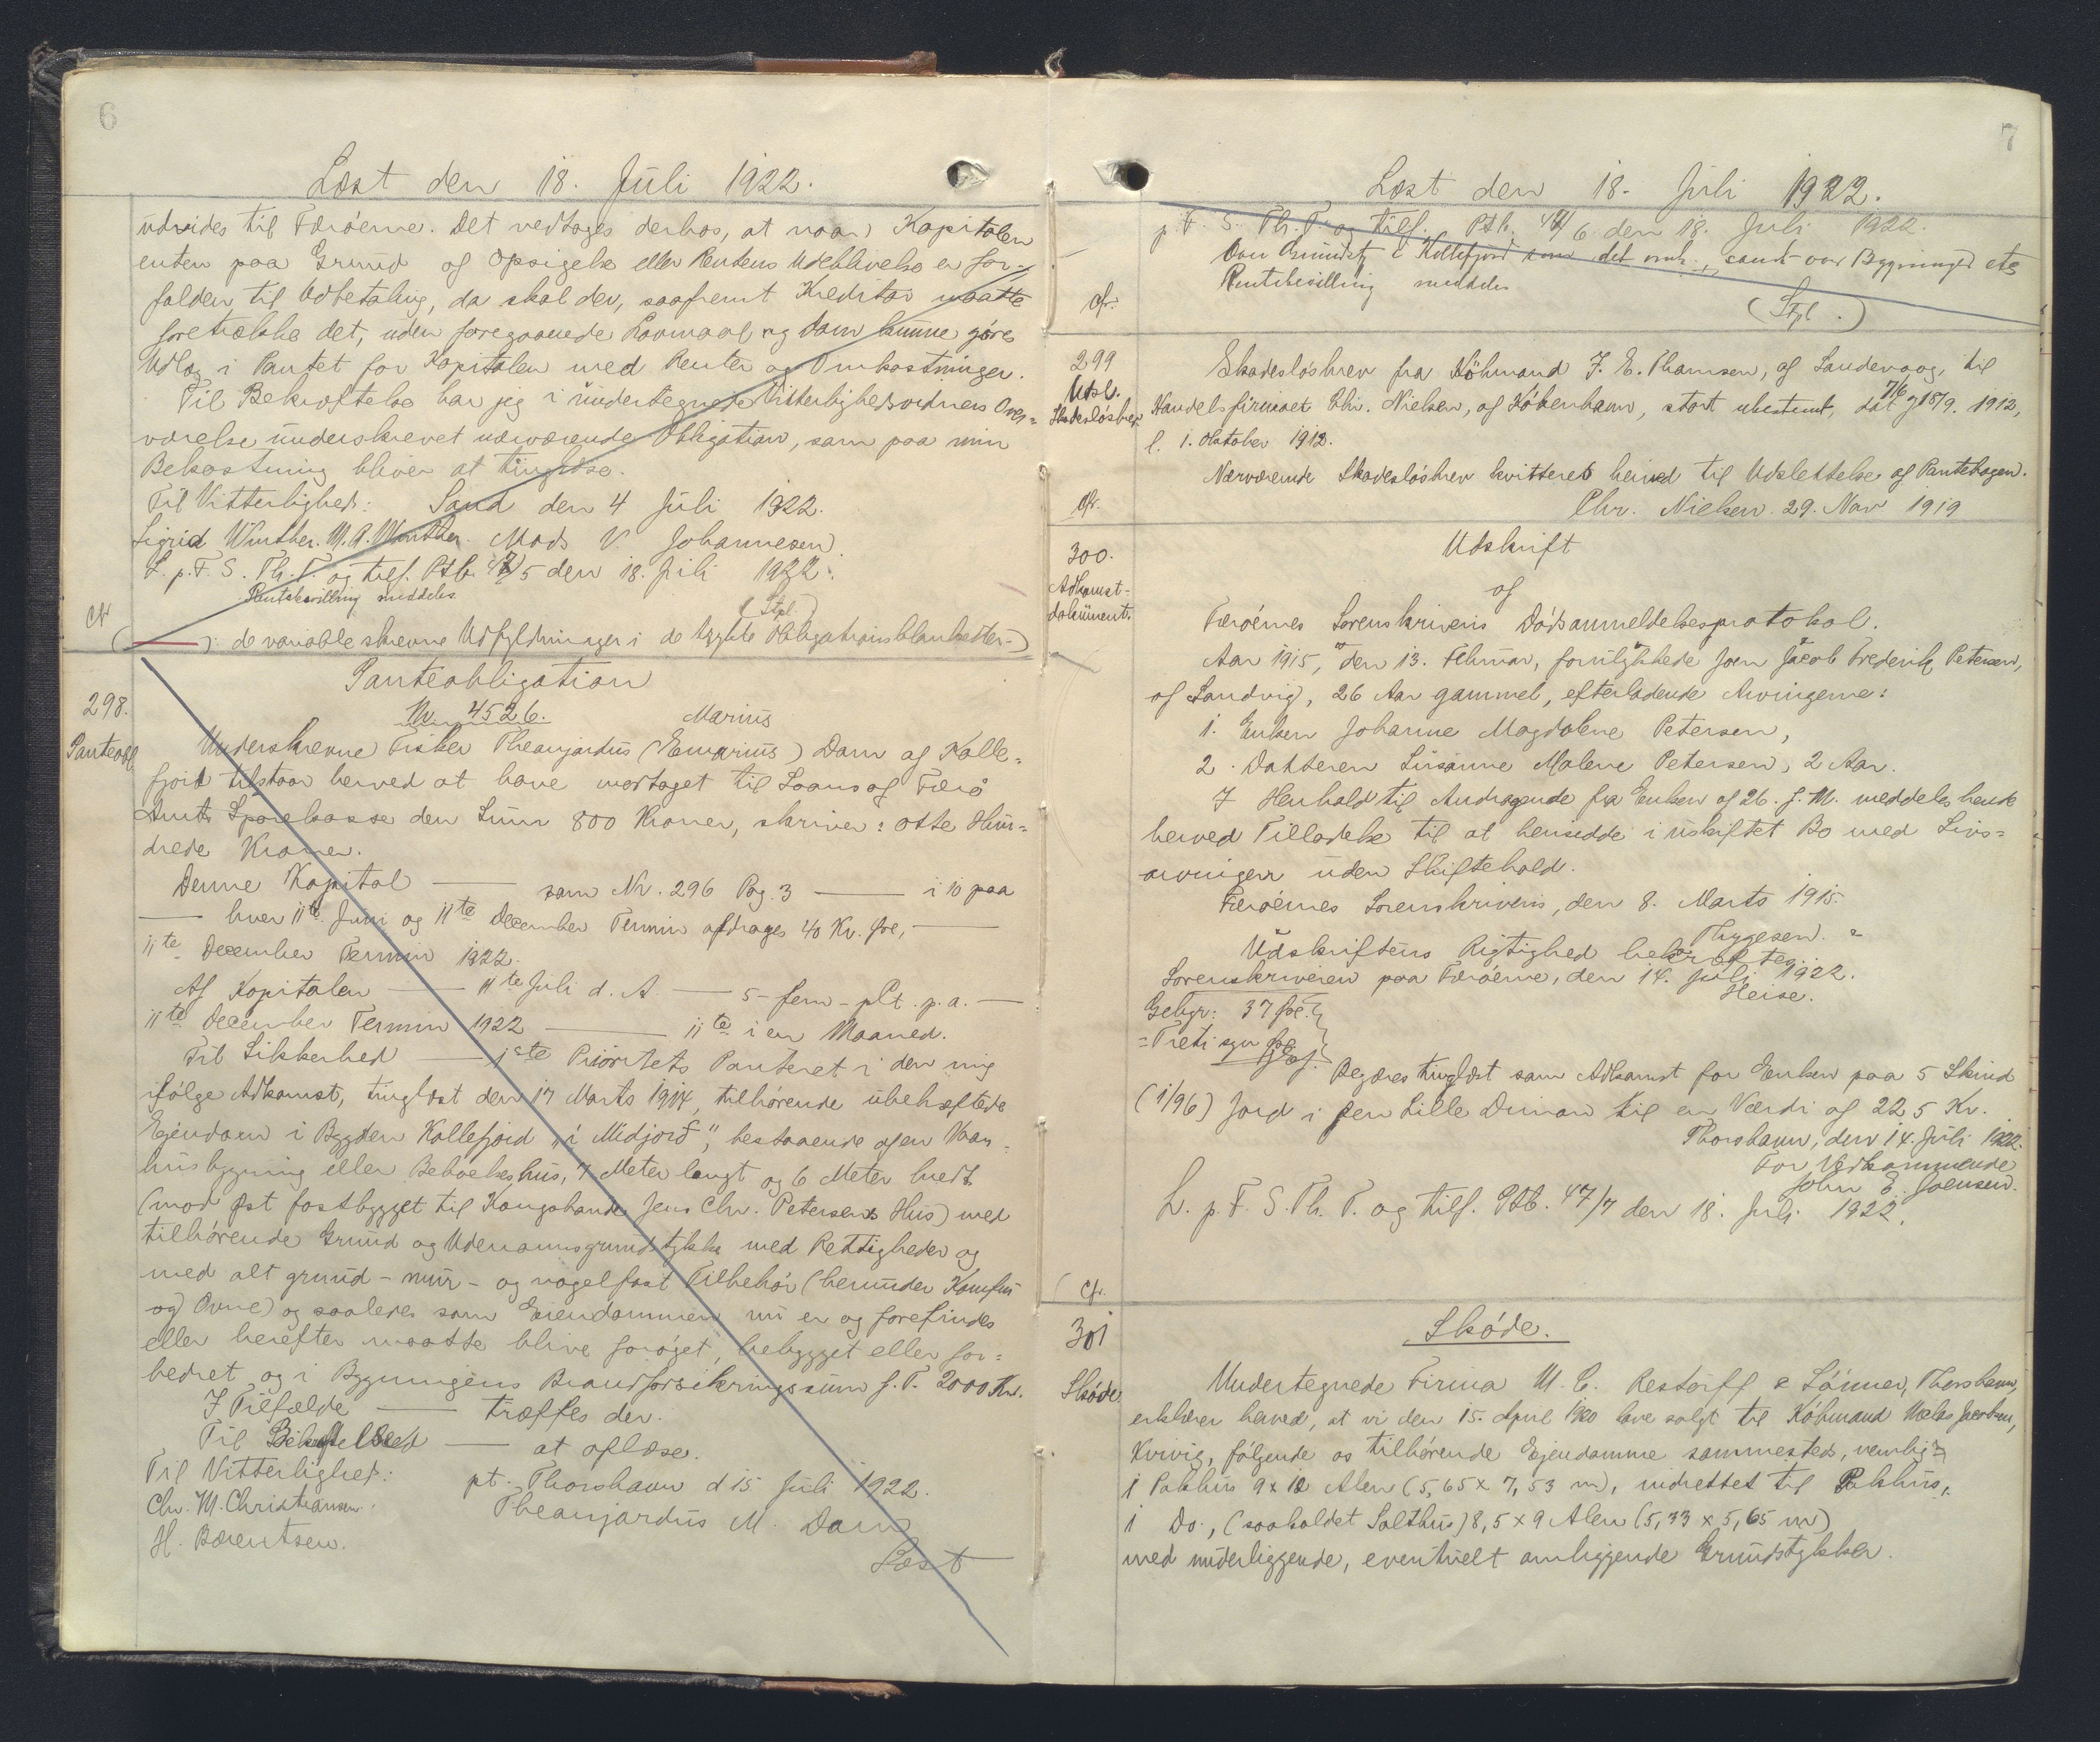 6
Læst den 18. Juli 1922.
udrides til Færøerne. Det vedtages derhos, at naar Kapitalen
enten paa Grund af Opsigelse eller Rentens Udeblivelse er for-
falden til Udbetaling, da skal der, saafremt Kreditor maatte
foretrække det, uden foregaaende Lovmaal og Dom kunne göres
Udlæg i Pantet for Kapitalen med Renter og Omkostninger.
Til Bekræftelse har jeg i undertegnede Vitterlighedsvidners Over=
værelse underskrevet nærværende Obligation, som paa min
Bekostning bliver at tinglæse.
Til Vitterlighed: Sand den 4 Juli 1922.
Sigrid Winther. M.A. Winther. Mads V. Johannesen.
L. p. F. S. Th. T. og tilf. Ptb. 47/5 den 18. Juli 1922.
Pantebevilling meddeles.
(Stpl.)
Cfr
( — ): de variable skrevne Udfyldninger i de trykte Obligationsblanketter-)
Panteobligation
298.
Nr. 4526.
Marius
Panteobl.
Underskrevne Fisker Theanjardus (Emarius) Dam af Kolle=
fjord tilstaar herved at have modtaget til Laans af Færø
Amts Sparekasse den Sum 800 Kroner, skriver: Otte Hun=
drede Kroner.
Denne Kapital — som Nr. 296 Pag. 3 — i 10 paa
— hver 11te Juni og 11te December Termin afdrages 40 Kr. Øre, —
11te December Termin 1922.
Af Kapitalen — 11te Juli d. A. — 5 - fem - pCt. p. a. —
11te December Termin 1922 — 11te i en Maaned.
Til Sikkerhed — 1ste Prioritets Panteret i den mig
ifölge Adkomst, tinglæst den 17 Marts 1914, tilhörende übehæftede
Ejendom i Bygden Kollefjord "i Midjord", bestaaende af en Vaan=
husbygning eller Beboelseshus, 7 Meter langt og 6 Meter bredt
(mod Øst fastbygget til Kongsbonde Jens Chr. Petersens Hus) med
tilhörende Grund og Udenomsgrundstykke med Rettigheder og
med alt grund - mur - og nagelfast Tilbehör (herunder Komfur
og Ovne) og saaledes som Ejendommen nu er og forefindes
eller herefter maatte blive foröget, bebygget eller for=
bedret, og i Bygningens Brandforsikringssum f. T. 2000 Kr.
I Tilfælde — træffes der.
Til Bekræftelse — at aflæse.
Til Vitterlighed: pt. Thorshavn d 15 Juli 1922.
Chr. M. Christiansen. Theanjardus M. Dam
H. Bærentsen.
Læst
7
Læst den 18. Juli 1922.
p. F. S. Th. T. og tilf. Ptb. 47/6 den 18. Juli 1922.
Pantebevilling meddeles
(Stpl.)
Cfr.
299
Udsl.
Skadeslösbrev
Skadeslösbrev fra Köbmand J. E. Thomsen, af Sandevaag, til
Handelsfirmaet Chr. Nielsen, af Köbenhavn, stort ubestemt, dat 7/6 og 15/9. 1912,
l. 1. Oktober 1912.
Nærværende Skadeslösbrev kvitteres herved til Udslettelse af Pantebogen.
Chr. Nielsen. 29. Nov 1919
Cfr.
Udskrift
300.
Adkomst-
dokument.
af
Færöernes Sorenskriveris Dödsanmeldelsesprotokol.
Aar 1915, den 13. Februar, forulykkede Joen Jacob Frederik Petersen,
af Sandvig, 26 Aar gammel, efterladende Arvingerne:
1. Enken Johanne Magdalene Petersen,
2. Datteren Susanne Malene Petersen, 2 Aar.
I Henhold til Andragende fra Enken af 26. f. M. meddeles hende
herved Tilladelse til at hensidde i uskiftet Bo med Livs=
arvingen uden Skiftehold.
Færöernes Sorenskriveri, den 8. Marts 1915.
Thygesen. =
Udskriftens Rigtighed bekræftes.
Sorenskriveren paa Færöerne, den 14. Juli 1922.
Heise.
Gebyr: 37 Øre.
=Treti syv Øre
Begæres tinglæst som Adkomst for Enken paa 5 Skind
(1/96) Jord i den Lille Dimon til en Værdi af 225 Kr.
Thorshavn, den 14. Juli 1922.
For Vedkommende
John E. Joensen.
L. p. F. S. Th. T. og tilf. Ptb. 47/7 den 18. Juli 1922.
Cfr.
301
Sköde.
Sköde
Undertegnede Firma M. C. Restorff & Sönner, Thorshavn,
erklærer herved, at vi den 15. April 1920 have solgt til Köbmand Niclas Jacobsen,
Kvivig, fölgende os tilhörende Ejendomme sammesteds, nemlig:
1 Pakhus 9 x 12 Alen (5,65 x 7,53 m), indrettet til Pakhus,
1 Do., (saakaldet Salthus) 8,5 x 9 Alen (5,33 x 5,65 m)
med underliggende, eventuelt omliggende Grundstykker.